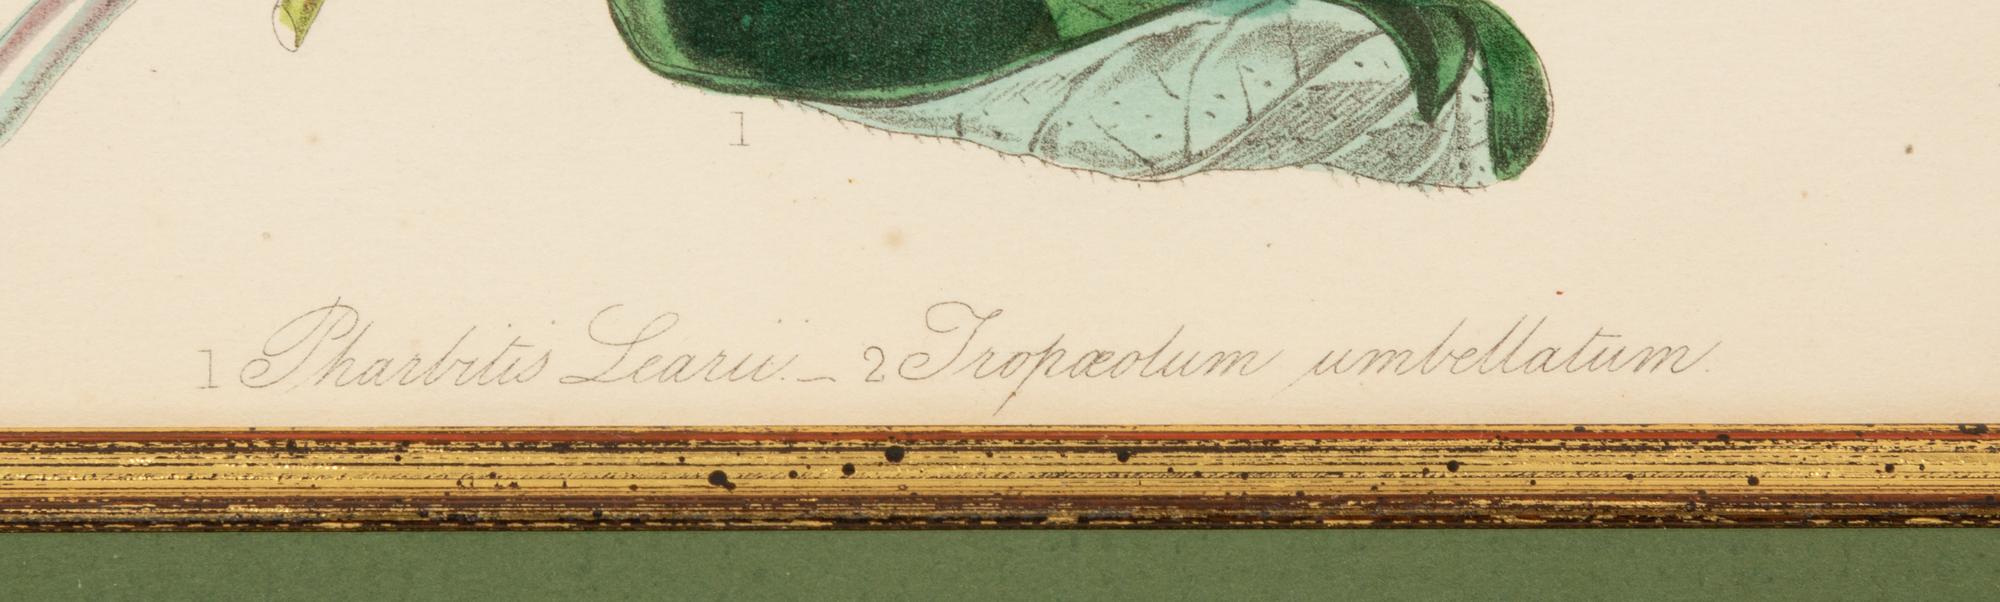 1
1 Pharbitis Learii._ 2 Tropæolum umbellatum.